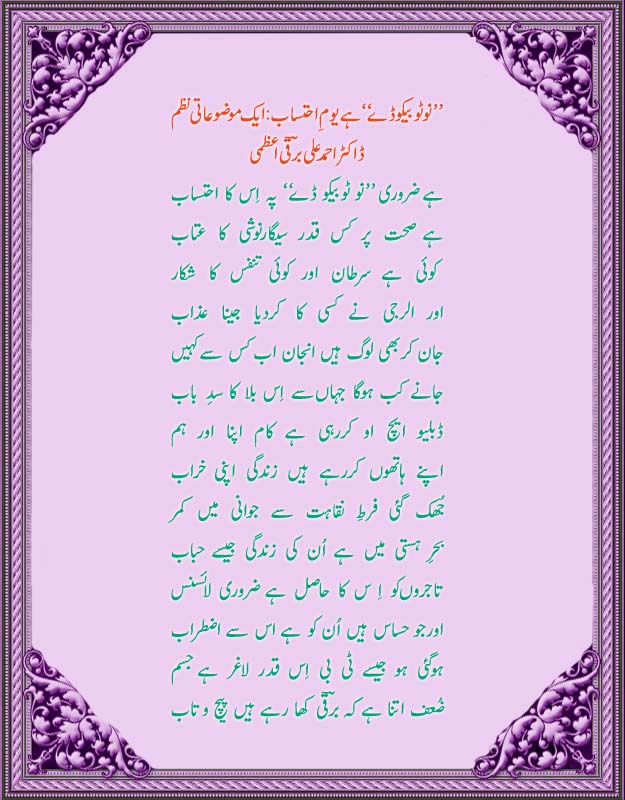 ’’نوٹوبیکوڈے‘‘ ہے یومِ احتساب: ایک موضوعاتی نظم
ڈاکٹر احمد علی برقیؔ اعظمی
ہے ضروری ’’نو ٹوبیکو ڈے‘‘ پہ اِس کا احتساب
ہے صحت پر کس قدر سیگارنوشی کا عتاب
کوئی ہے سرطان اور کوئی تنفس کا شکار
اور الرجی نے کسی کا کردیا جینا عذاب
جان کر بھی لوگ ہیں انجان اب کس سے کہیں
جانے کب ہوگا جہاں سے اِس بلا کا سدِ باب
ڈبلیو ایچ او کررہی ہے کام اپنا اور ہم
اپنے ہاتھوں کررہے ہیں زندگی اپنی خراب
جُھک گئی فرطِ نقاہت سے جوانی میں کمر
بحرِ ہستی میں ہے اُن کی زندگی جیسے حباب
تاجروں کو اِ س کا حاصل ہے ضروری لائسنس
اورجو حساس ہیں اُن کو ہے اس سے اضطراب
ہوگئی ہو جیسے ٹی بی اِس قدر لاغر ہے جسم
ضُعف اتنا ہے کہ برقیؔ کھا رہے ہیں پیچ و تاب